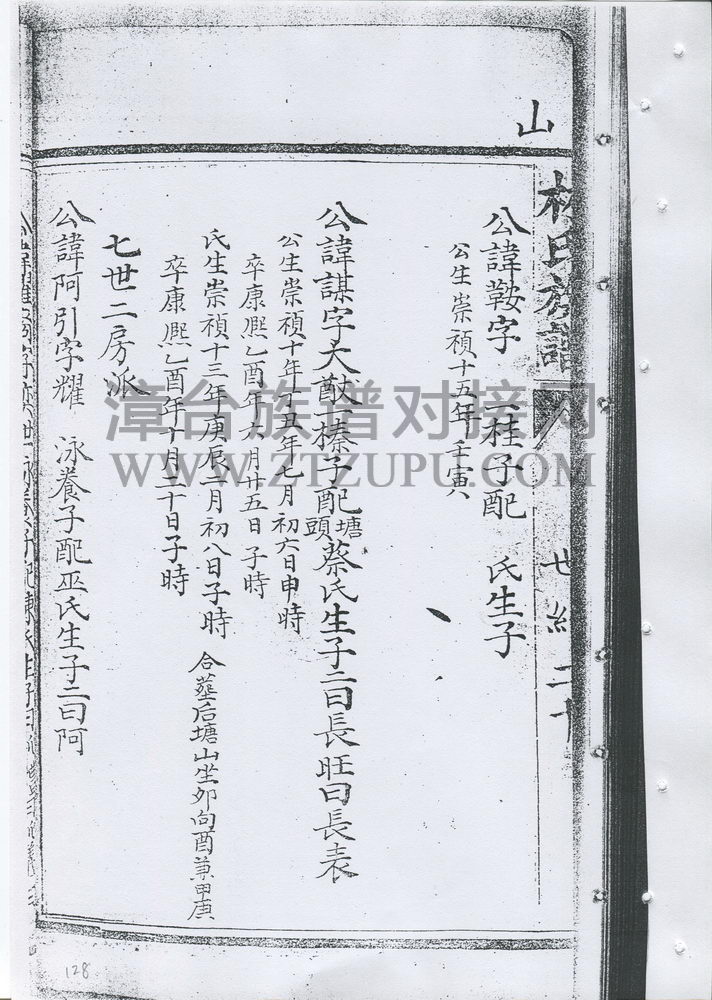 山
林氏族譜 世紀 二十
公諱鞍字 桂子配 氏生子
公生崇禎十五年壬寅八
公諱謀字大猷榛子配塘頭蔡氏生子二曰長旺曰長表
公生崇禎十年丁丑年七月初六日申時
卒康熙乙酉年六月廿五日子時
氏生崇禎十三年庚辰二月初八日子時
卒康熙乙酉年十月二十日子時
合塟后塘山坐夘向酉兼甲庚
七世二房派
公諱阿引字耀 泳養子配巫氏生子二曰阿
漳台族谱对接网
WWW.ZTZUPU.COM
128